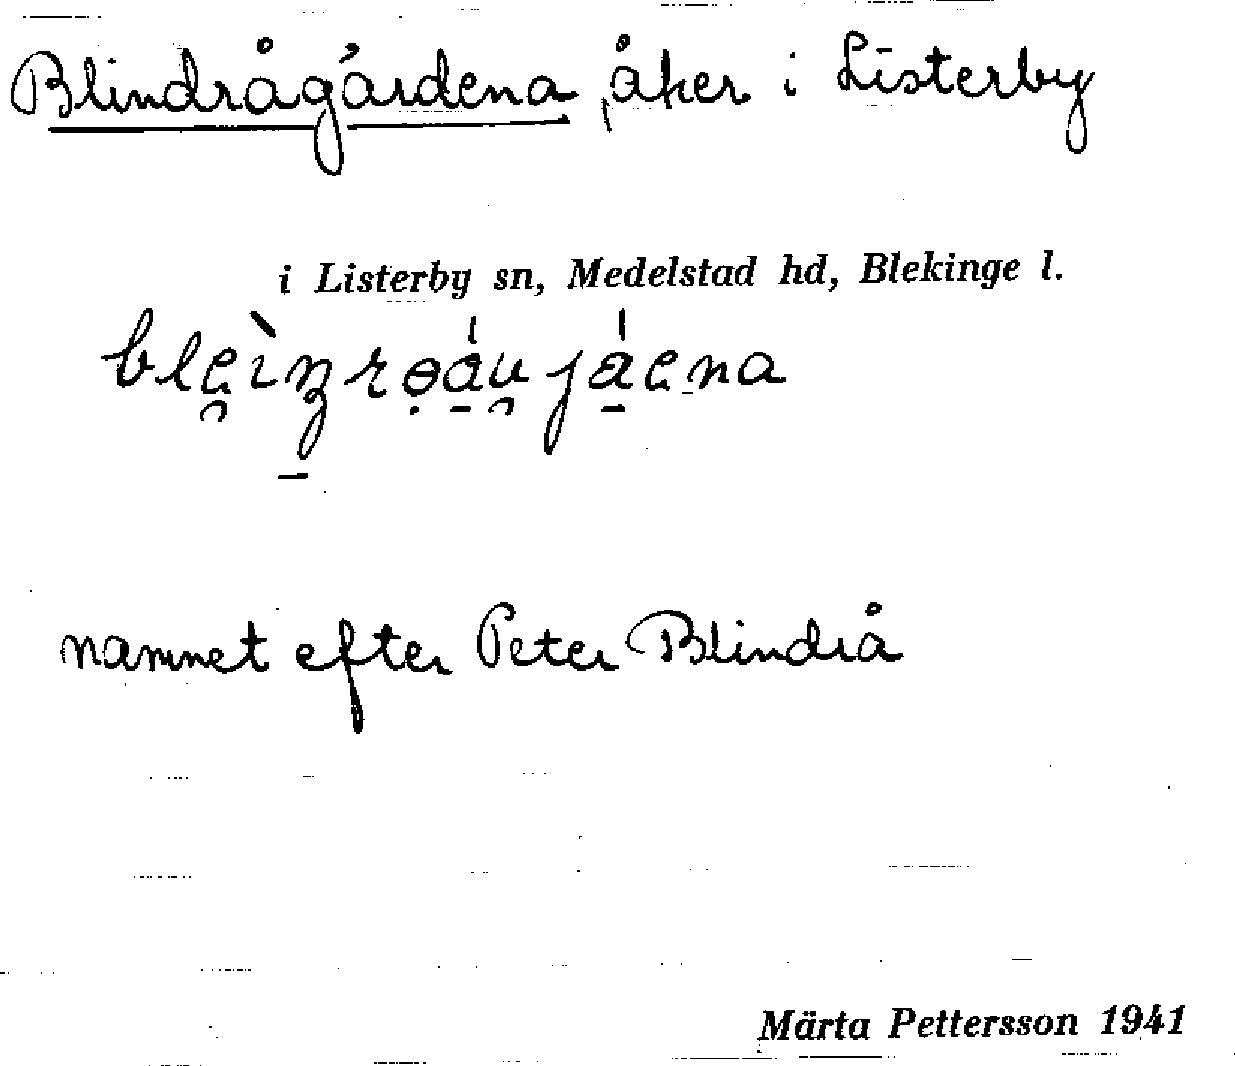 Blindrågårdena, åker i Listerby
i Listerby sn, Medelstad hd, Blekinge l.
namnet efter Peter Blindrå
Märta Pettersson 1941